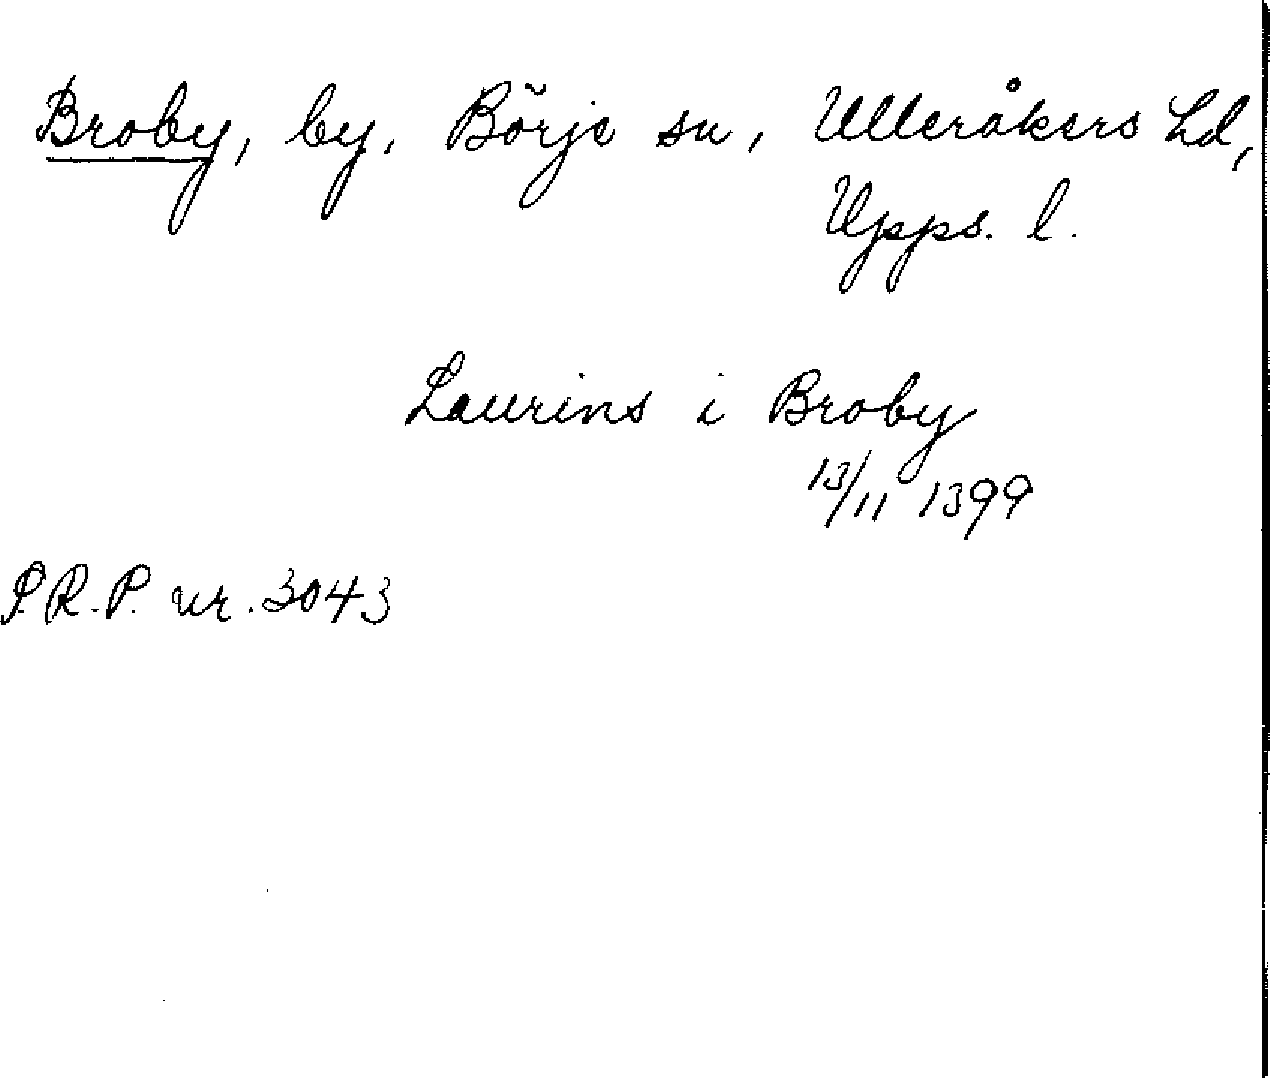 Broby, by, Börje sn, Ulleråkers hd,
Upps. l.
Laurins i Broby
13/11 1399
P.R.P. nr. 3043